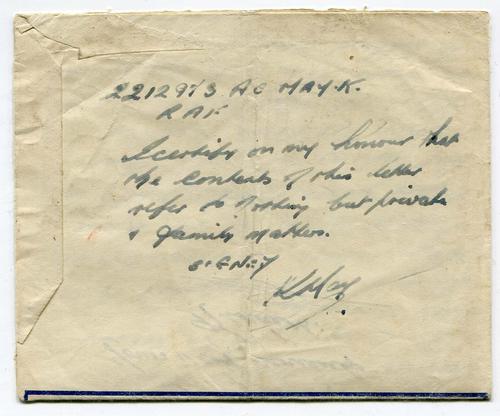 2212973 AC MAY K.
RAF
I certify on my honour that
the contents of this letter
refer to nothing but private
& family matters.
SIGNED
KMay